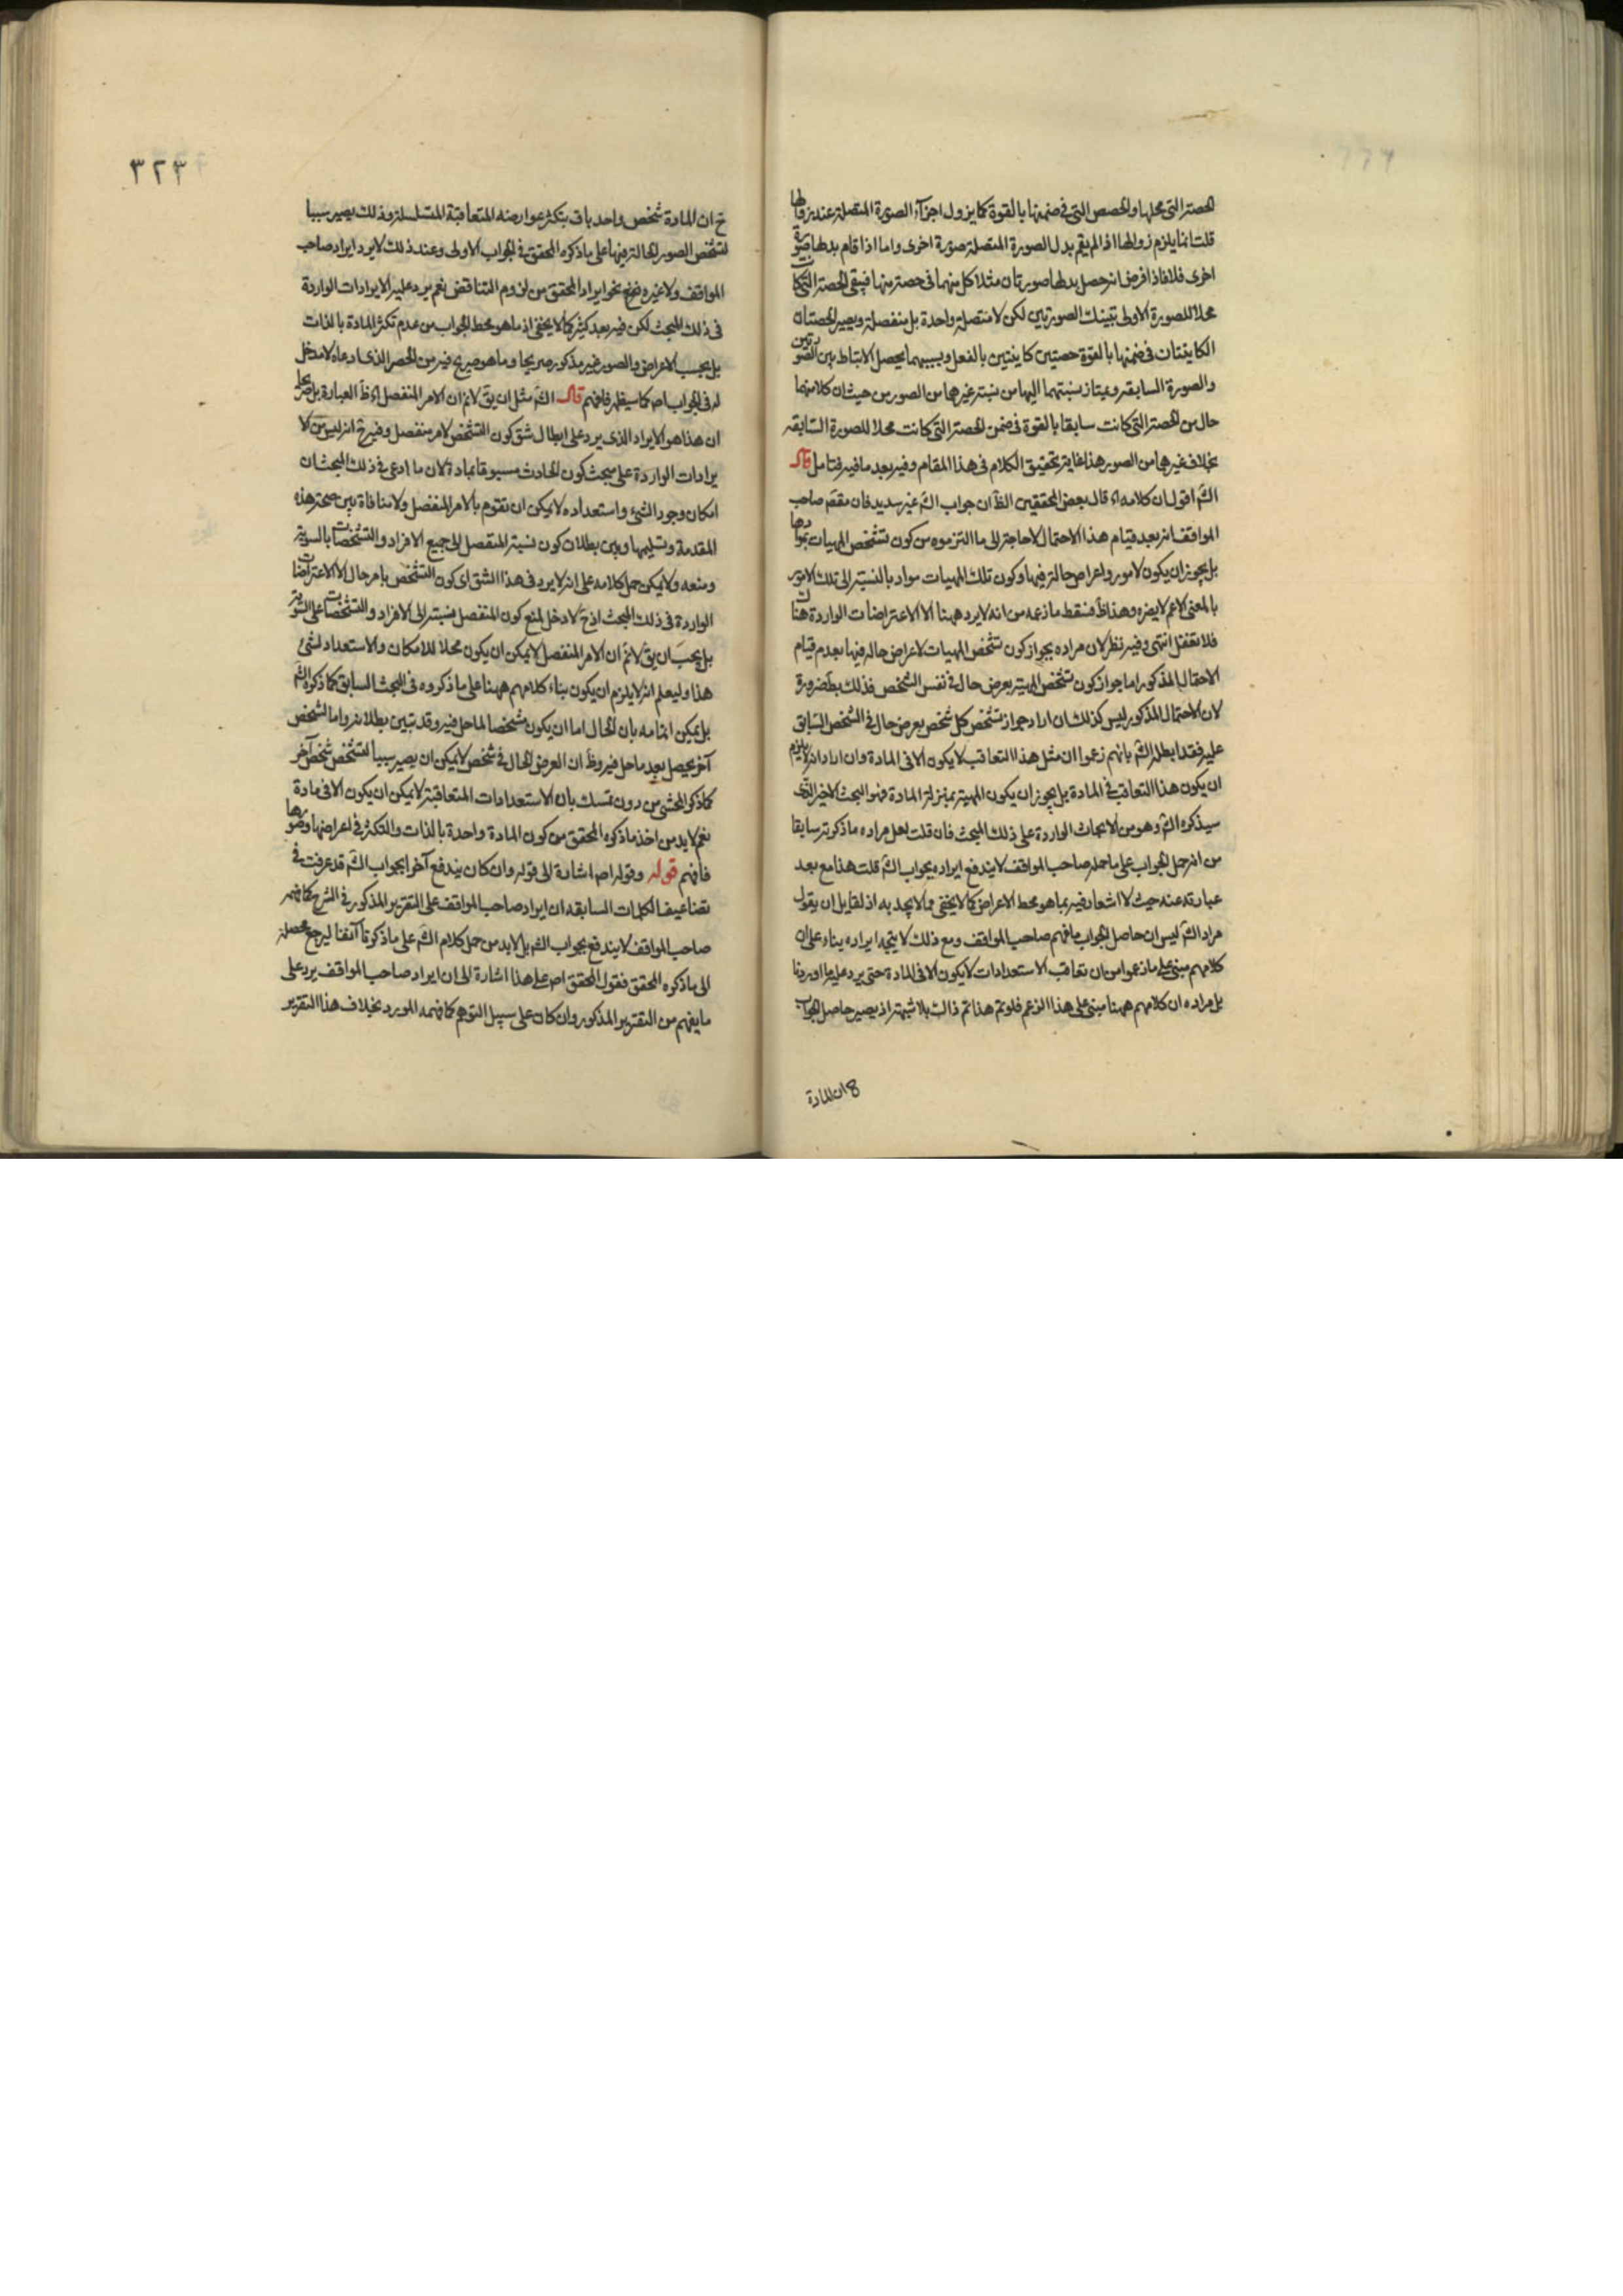 الحصة التي محلها والحصص التي في ضمنها بالقوة كما يزول اجزاء الصورة المتصلة عند زوالها
قلت انما يلزم زوالها اذا لم يقم بدل الصورة المتصلة صورة اخرى واما اذا قام بدلها صورة
اخرى فلا فاذا فرض انه حصل بدلها صورتان مثلا كل منهما في حصة منها فيبقى الحصة التي كانت
محلا للصورة الاولى بتينك الصورتين لكن لا متصلة واحدة بل منفصلة ويصير الحصتان
الكاينتان في ضمنها بالقوة حصتين كاينتين بالفعل وبسببهما يحصل الارتباط بين الصورتين
والصورة السابقه ويمتاز نسبتهما اليها من نسبة غيرها من الصور من حيث ان كلا منهما
حال من الحصة التي كانت سابقا بالقوة في ضمن الحصة التي كانت محلا للصورة السابقه
بخلاف غيرها من الصور هذا غاية تحقيق الكلام في هذا المقام وفيه بعد ما فيه فتامل قال
الش اقول ان كلامه اه قال بعض المحققين الظ ان جواب الش غير سديد فان مقصم صاحب
المواقف انه بعد قيام هذا الاحتمال لا حاجة الى ما التزموه من كون تشخص المهيات بموادها
بل يجوز ان يكون لامور واعراض حالة فيها وكون تلك المهيات مواد بالنسبة الى تلك الامور
بالمعنى الاعم لا يضره وهذا ظ فسقط ما زعمه من انه لا يرد ههنا الا الاعتراضات الواردة هناك
فلا تغفل انتهى وفيه نظر لان مراده بجواز كون تشخص المهيات لاعراض حاله فيها بعدم قيام
الاحتمال المذكور اما جواز كون تشخص المهية بعرض حال في نفس الشخص فذلك بط ضرورة
لان الاحتمال المذكور ليس كذلك ان اراد جواز تشخص كل شخص بعرض حال في الشخص السابق
عليه فقد ابطله الش بانهم زعموا ان مثل هذا التعاقب لا يكون الا في المادة وان اراد انه لا يلزم
ان يكون هذا التعاقب في المادة بل يجوز ان يكون المهية بمنزلة المادة فهو البحث الاخير الذي
سيذكره الش وهو من الابحاث الواردة على ذلك المبحث فان قلت لعل مراده ما ذكرته سابقا
من انه حمل الجواب على ما حمله صاحب المواقف لا يندفع ايراده بجواب الش قلت هذا مع بعد
عبارته عنه حيث لا اشعار فيه بما هو محط الاعراض كما لا يخفى مما لا يجد به اذ لقايل ان يقول
مراد الش ليس ان حاصل الجواب ما فهم صاحب المواقف ومع ذلك لا يتجه ايراده بناء على ان
كلامهم مبني على ما زعموا من ان تعاقب الاستعدادات لا يكون الا في المادة حتى يرد عليه ما اوردنا
بل مراده ان كلامهم ههنا مبني على هذا الزعم فلو تم هذا تم ذاك بلا شبهة اذ يصير حاصل الجواب
ح ان المادة
٣٢٣
ح ان المادة شخص واحد باق بتكثر عوارضه المتعاقبة المتسلسلة وذلك يصير سببا
لتشخص الصور الحالة فيها على ما ذكره المحقق في الجواب الاولى وعند ذلك لا يرد ايراد صاحب
المواقف ولا غيره نحو ايراد المحقق من لزوم التناقض نعم يرد عليه الايرادات الواردة
في ذلك المبحث لكن فيه بعد كثير كما لا يخفى اذ ما هو محط الجواب من عدم تكثر المادة بالذات
بل بحسب الاعراض والصور غير مذكور صريحا وما هو صريح فيه من الحصر الذي ادعاه لا مدخل
له في الجواب اصلا كما سيظهر فافهم قال الش مثل ان يق لانم ان الامر المنفصل اه ظ العبارة بل صريحها
ان هذا هو الايراد الذي يرد على ابطال شق كون التشخص لامر منفصل وفيه ح انه ليس من الا
يرادات الواردة على مبحث كون الحادث مسبوقا بمادة لان ما ادعى في ذلك المبحث ان
امكان وجود الشيء واستعداده لا يمكن ان يقوم بالامر المنفصل ولا منافاة بين صحة هذه
المقدمة وتسليمها وبين بطلان كون نسبة المنفصل الى جميع الافراد والتشخصات بالسوية
ومنعه ولا يمكن حمل كلامه على انه لا يرد في هذا الشق اى كون التشخص بامر حال الا الاعتراضات
الواردة في ذلك المبحث اذ ح لا دخل لمنع كون المنفصل نسبته الى الافراد والتشخصات على السوية
بل يجب ان يق لانم ان الامر المنفصل لا يمكن ان يكون محلا للامكان والاستعداد لشئ
هذا وليعلم انه لا يلزم ان يكون بناء كلامهم ههنا على ما ذكروه في المبحث السابق كما ذكره الش
بل يمكن اتمامه بان الحال اما ان يكون مشخصا لما حل فيه وقد تبين بطلانه واما لشخص
آخر يحصل بعد ما حل فيه وظ ان العرض الحال في شخص لا يمكن ان يصير سببا لتشخص شخص آخر
كما ذكر المحشي من دون تمسك بان الاستعدادات المتعاقبة لا يمكن ان يكون الا في مادة
نعم لا بد من اخذ ما ذكره المحقق من كون المادة واحدة بالذات والتكثر في اعراضها وصورها
فافهم قوله وقوله اصلا اشارة الى قوله وان كان يندفع آخرا بجواب الش قد عرفت في
تضاعيف الكلمات السابقه ان ايراد صاحب المواقف على التقرير المذكور في الشرح كما فهمه
صاحب المواقف لا يندفع بجواب الش بل لا بد من حمل كلام الش على ما ذكرنا آنفا ليرجع محصله
الى ما ذكره المحقق فقول المحقق اصلا على هذا اشارة الى ان ايراد صاحب المواقف يرد على
ما يفهم من التقرير المذكور وان كان على سبيل التوهم كما فهمه المورد بخلاف هذا التقرير